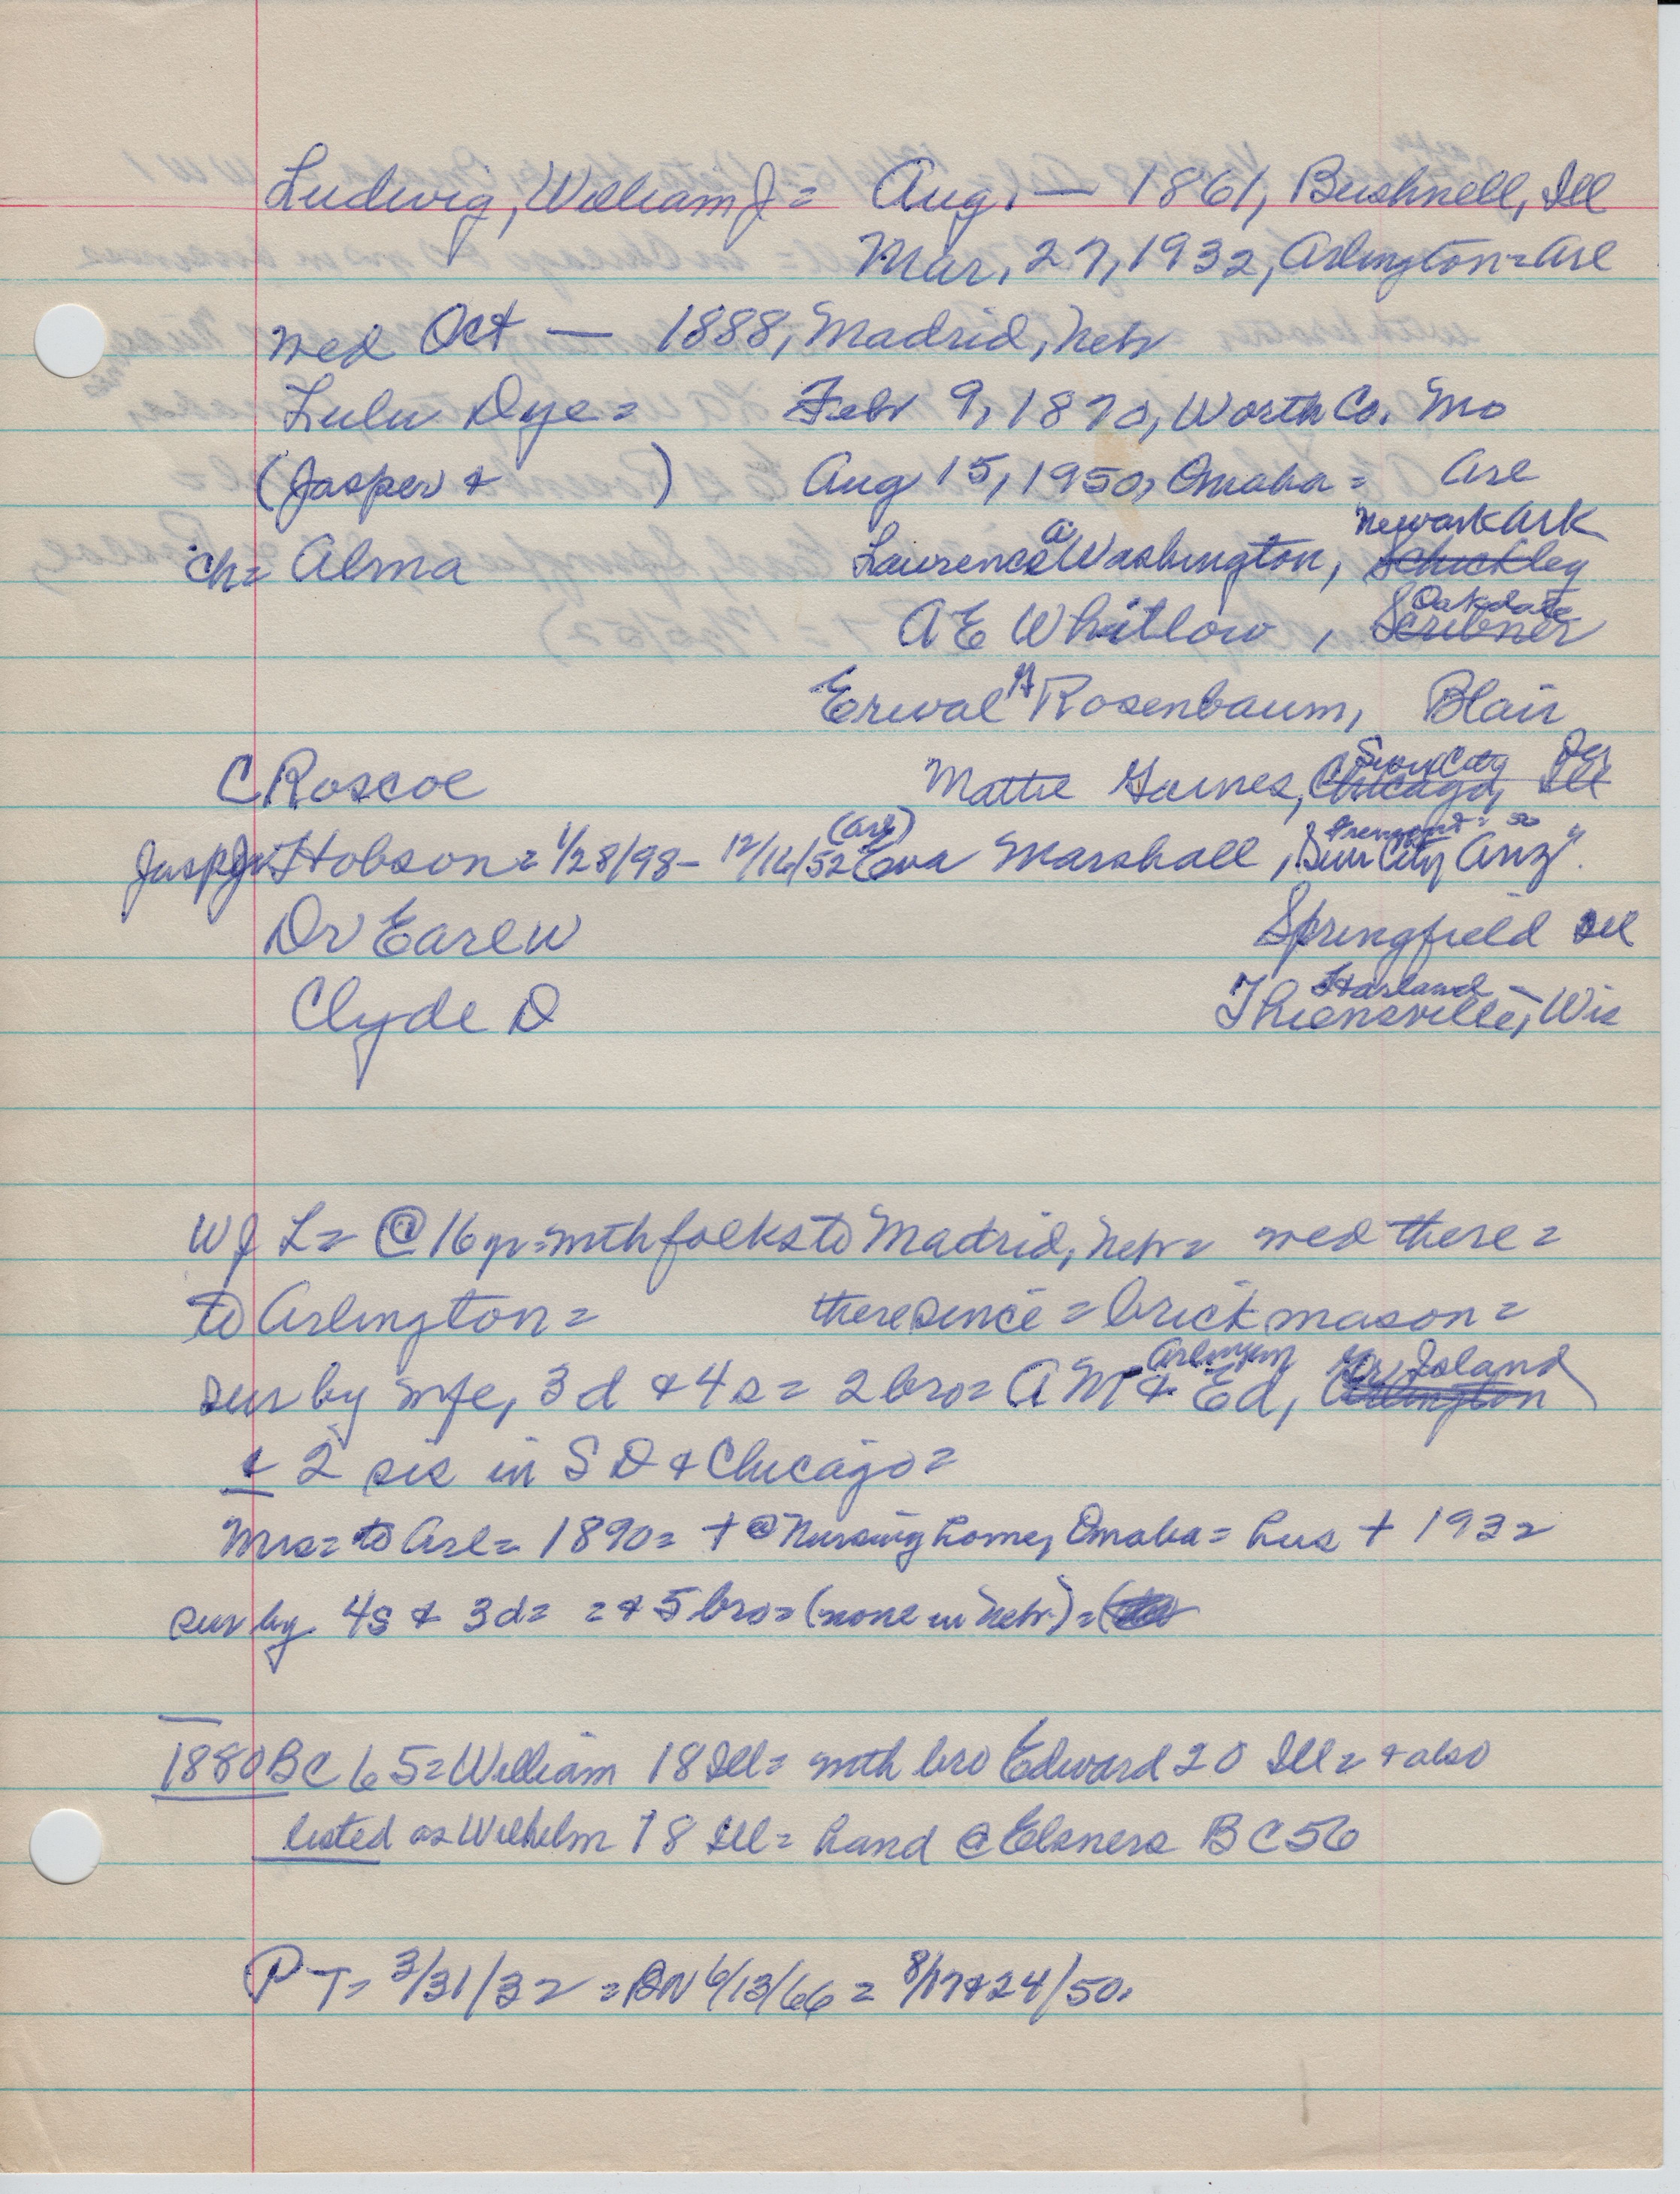 Ludwig, William J = Aug. — 1861, Bushnell, Ill
Mar, 27, 1932, Arlington = Arl
wed Oct — 1888, Madrid, Nebr
Lulu Dye = Febr 9, 1870, Worth Co. Mo
(Jasper & ) Aug 15, 1950, Omaha = Arl
Newark Ark
ch = Alma Lawrence A Washington, Schickley
Oakdale
A E Whitlow , Scribner
Erwal H Rosenbaum, Blair
Sun City
C Roscoe Mattie Gaines, Chicago, Ill
(Arl) Fremont =
Jasp Jr Hobson = 1/28/98 - 12/16/52 Eva Marshall, Sun City Ariz
Dr Earl W Springfield Ill
Hartland
Clyde D Thiensville, Wis
W J L = @ 16 yr = with folks to Madrid, Nebr = wed there =
to Arlington = there since = brick mason =
Arlington Gr Island
sur by wife, 3 d & 4 s = 2 bro = A M & Ed, Arlington
& 2 sis in S D & Chicago =
Mrs = to Arl = 1890 = + @ Nursing home, Omaha = hus + 1932
sur by 4s & 3d = = & 5 bro = (none in Nebr) =
1880 BC 65 = William 18 Ill = with bro Edward 20 Ill = & also
listed as Wilhelm 18 Ill = hand @ Elsners BC 56
P T = 3/31/32 = BN 6/13/66 = 8/17 & 24/50.